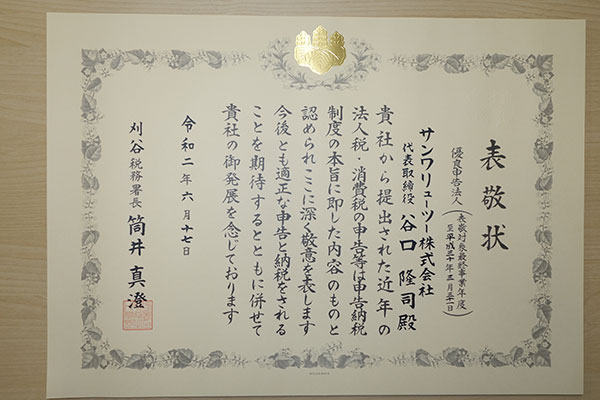 表敬状
優良申告法人（表敬対象最終事業年度
至平成三十一年三月三十一日）
サンワリューツー株式会社
代表取締役 谷口隆司殿
貴社から提出された近年の
法人税・消費税の申告等は申告納税
制度の本旨に即した内容のものと
認められここに深く敬意を表します
今後とも適正な申告と納税をされる
ことを期待するとともに併せて
貴社の御発展を念じております
令和二年六月十七日
刈谷税務署長 筒井真澄